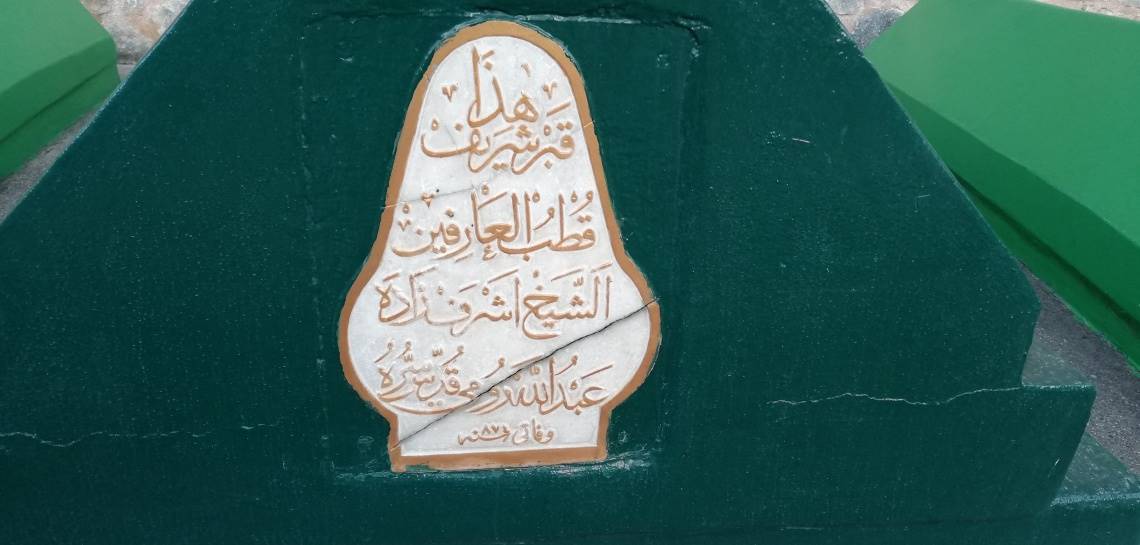 هَذَا
قَبْر شَرِيفْ
قُطْبُ الْعَارِفِينْ
اَلشَّيَخْ اَشْرَفْ زَادَه
عَبْدُ اللّٰه رُومِى قُدِّسَ سِرُّهُ
وفاتى سنه ٨٧٤